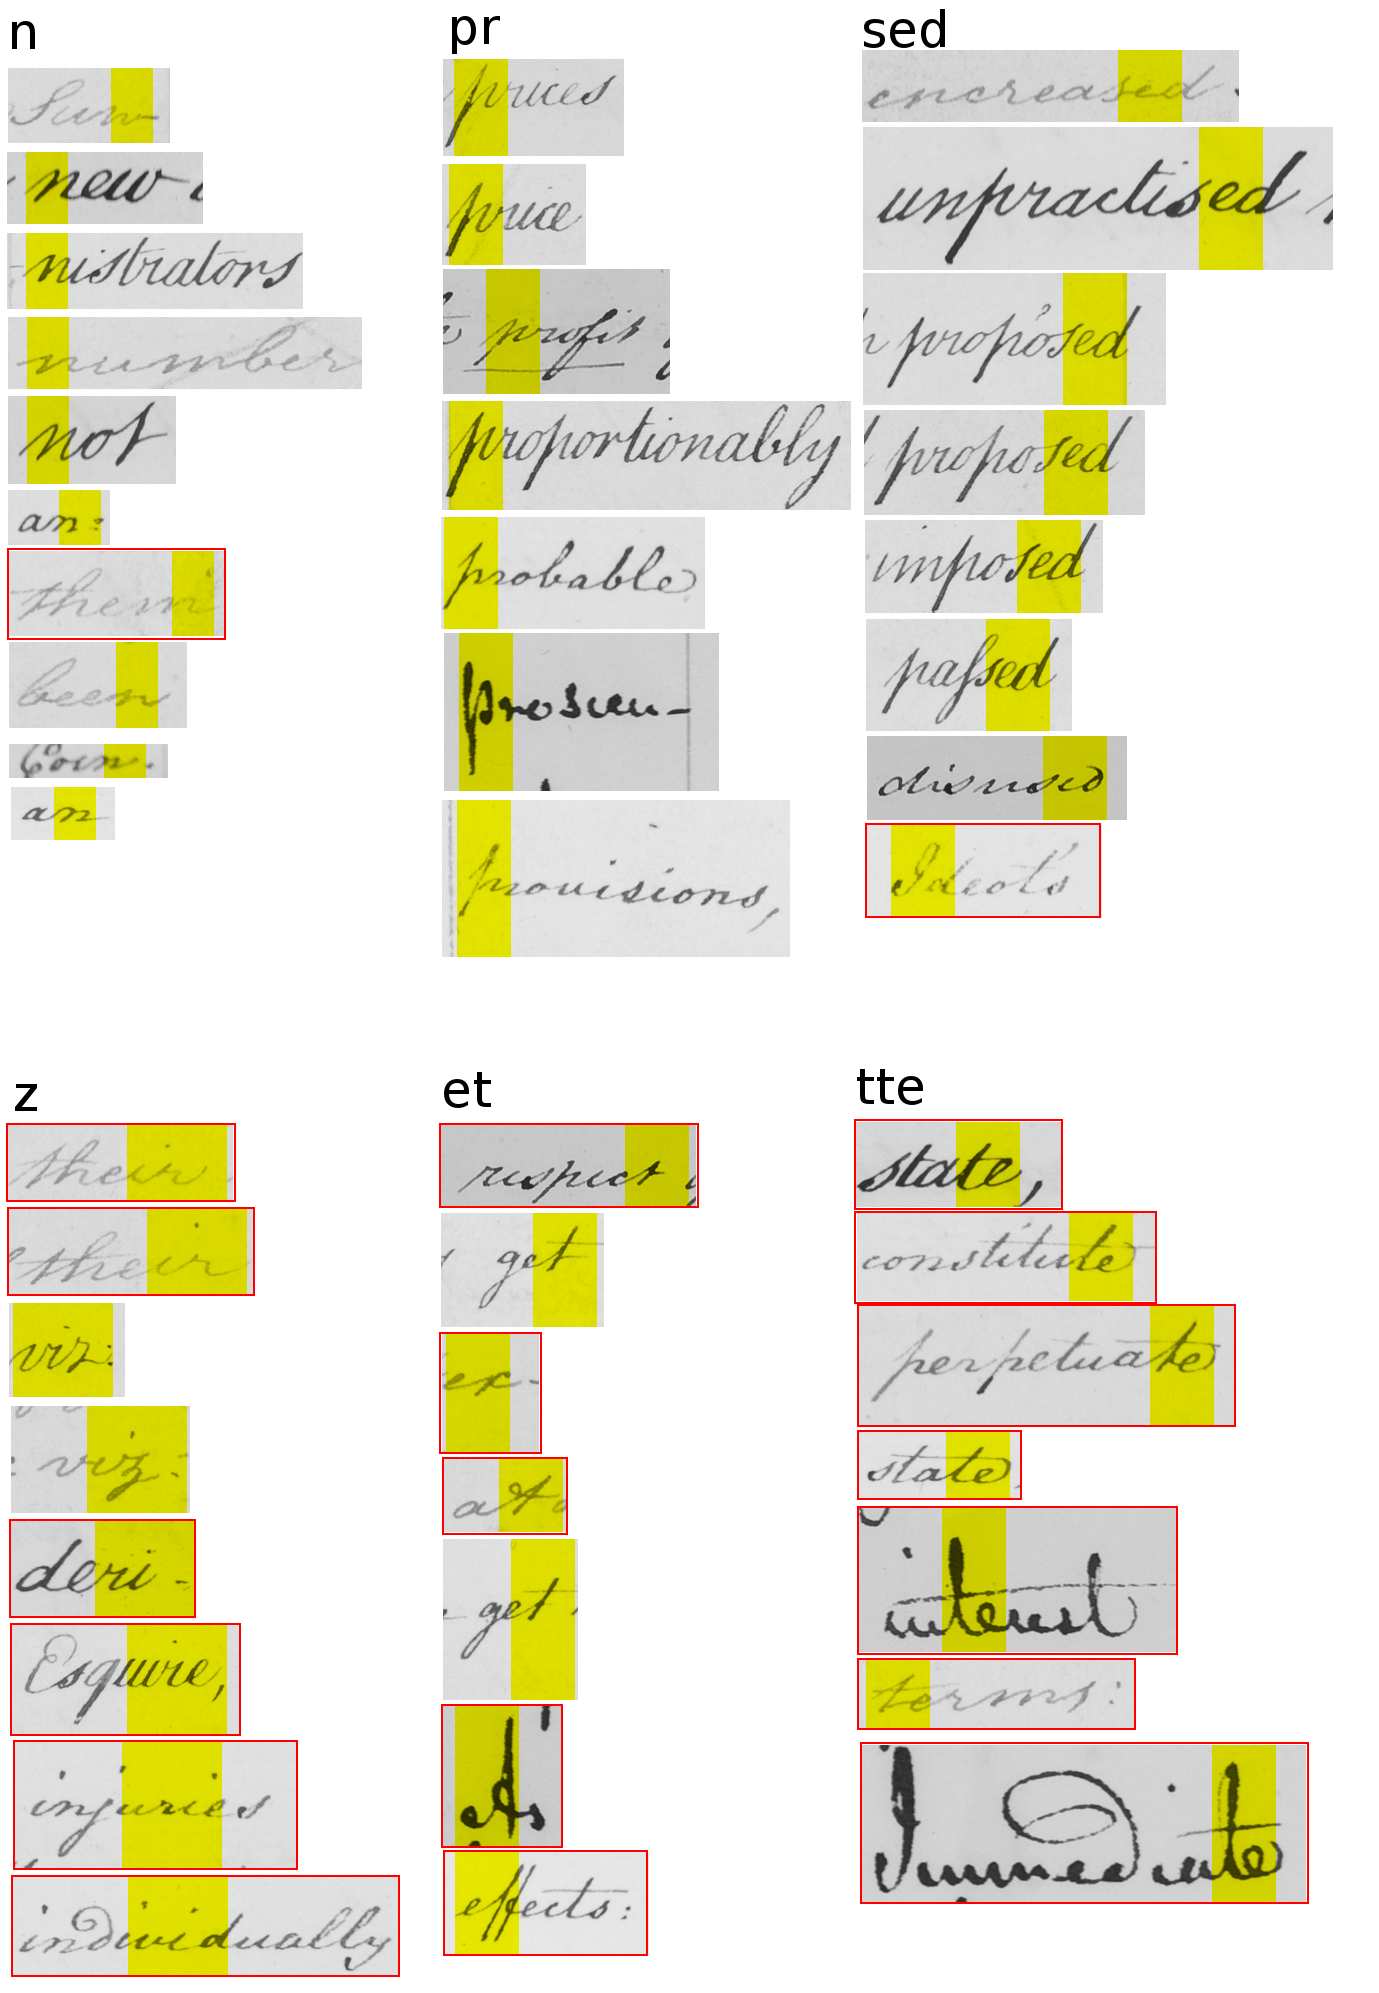 n
Sum
new
nistrators
number
not
an:
them
been
Coin.
an
pr
prices
price
profit
proportionably
probable
proscu-
provisions,
sed
increased
unpractised
proposed
proposed
imposed
passed
disused
Ideot's
z
their
their
viz:
viz:
deri-
Esquire,
injuries
individually
et
respect
get
ex-
at
get
As
effects:
tte
state,
constitute
perpetuate
state
interest
terms:
Immediate